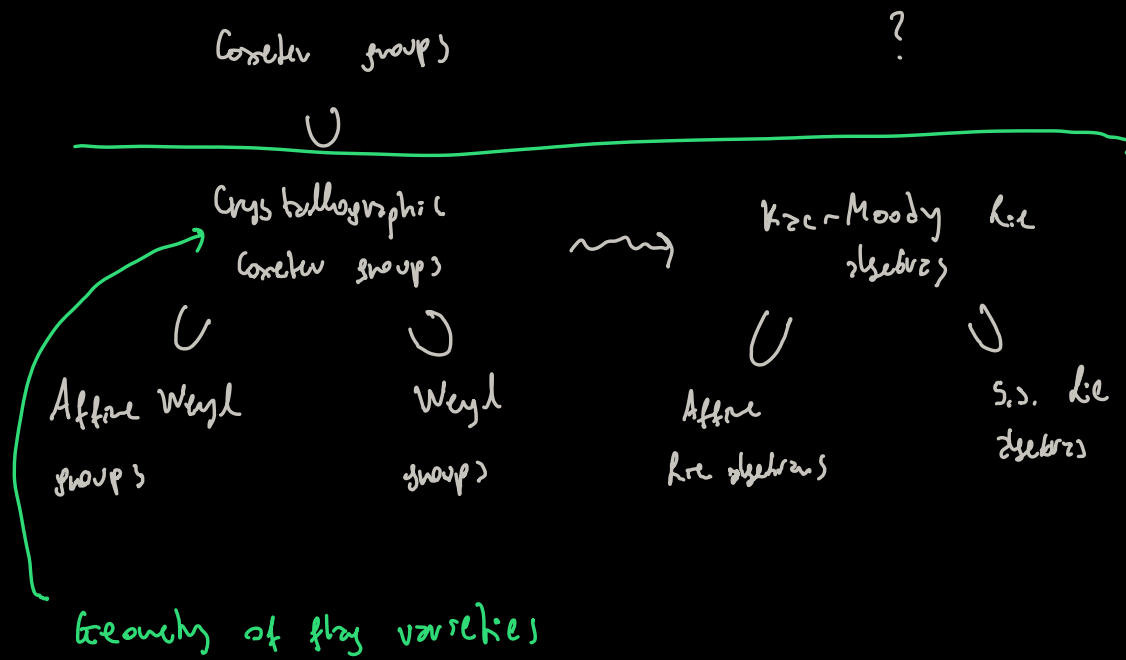 Coxeter groups
?
Crystallographic
Coxeter groups
Kac-Moody Lie
algebras
Affine Weyl
groups
Weyl
groups
Affine
Lie algebras
s.s. Lie
algebras
Geometry of flag varieties